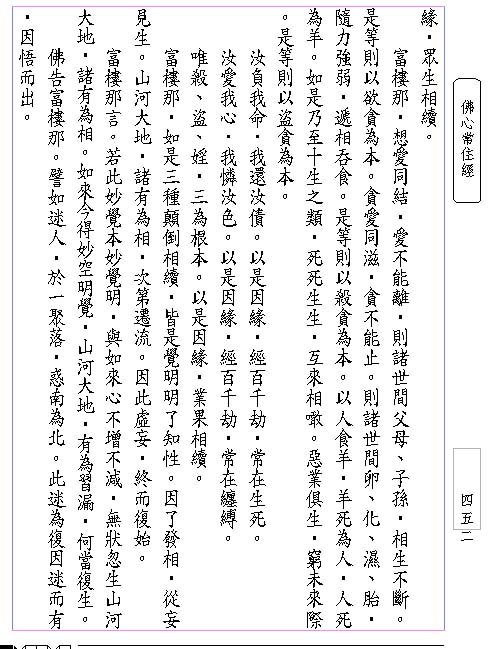 佛心常住經
四五二
緣．眾生相續。
富樓那．想愛同結．愛不能離．則諸世間父母、子孫．相生不斷。
是等則以欲貪為本。貪愛同滋．貪不能止。則諸世間卵、化、濕、胎．
隨力強弱．遞相吞食。是等則以殺貪為本。以人食羊．羊死為人．人死
為羊。如是乃至十生之類．死死生生．互來相噉。惡業俱生．窮未來際
。是等則以盜貪為本。
汝負我命．我還汝債。以是因緣．經百千劫．常在生死。
汝愛我心．我憐汝色。以是因緣．經百千劫．常在纏縛。
唯殺、盜、婬．三為根本。以是因緣．業果相續。
富樓那．如是三種顛倒相續．皆是覺明明了知性。因了發相．從妄
見生。山河大地．諸有為相．次第遷流。因此虛妄．終而復始。
富樓那言。若此妙覺本妙覺明．與如來心不增不減．無狀忽生山河
大地．諸有為相。如來今得妙空明覺．山河大地．有為習漏．何當復生。
佛告富樓那。譬如迷人．於一聚落．惑南為北。此迷為復因迷而有
．因悟而出。